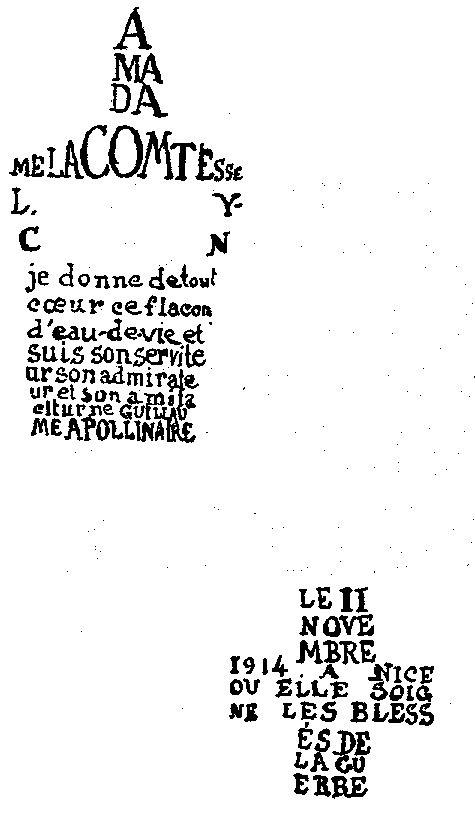 A
MA
DA
ME LA COMTESSE
L. Y-
C N
je donne de tout
cœur ce flacon
d'eau-de-vie et
suis son servite
ur son admirate
ur et son ami ta
citurne GUILLAU
ME APOLLINAIRE
LE 11
NOVE
MBRE
1914 A NICE
OU ELLE SOIG
NE LES BLESS
ÉS DE
LA GU
ERRE